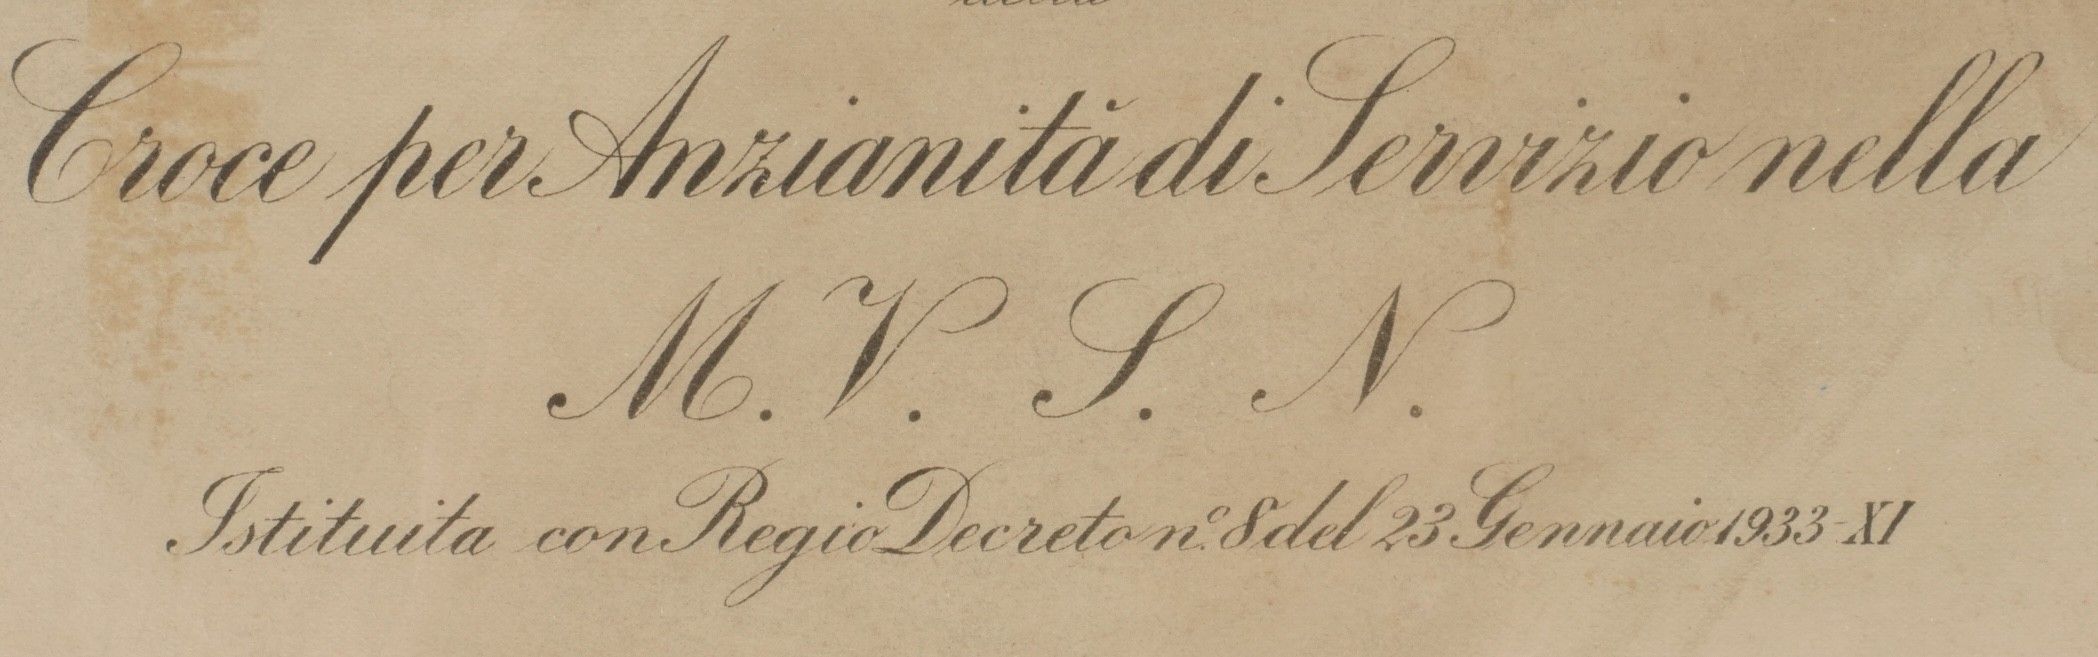 Croce per Anzianità di Servizio nella
M. V. S. N.
Istituita con Regio Decreto n.º 8 del 23 Gennaio 1933-XI